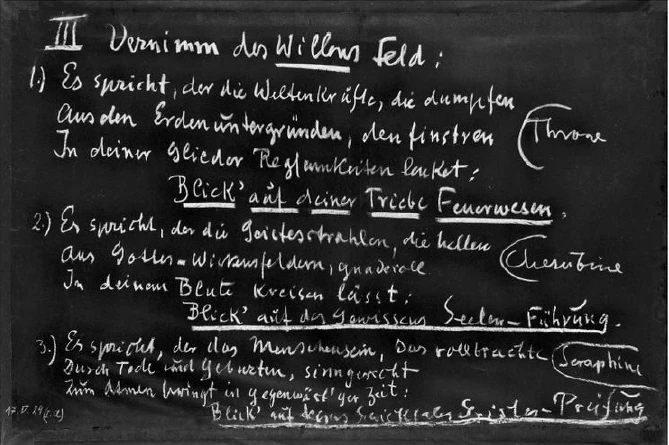 III Vernimm des Willens Feld:
1.) Es spricht, der die Weltenkräfte, die dumpfen
Aus den Erdenuntergründen, den finstren
In deiner Glieder Regsamkeiten lenket:
Throne
Blick' auf deiner Triebe Feuerwesen.
2.) Es spricht, der die Geistesstrahlen, die hellen
Aus Gottes-Wirkensfeldern, gnadevoll
Cherubine
In deinem Blute kreisen lässt:
Blick' auf des Gewissens Seelen-Führung.
3.) Es spricht, der das Menschensein, das vollbrachte
Seraphine
Durch Tode und Geburten, sinngerecht
Zum Atmen bringt in gegenwärt'ger Zeit:
Blick' auf deines Schicksales Geistes-Prüfung